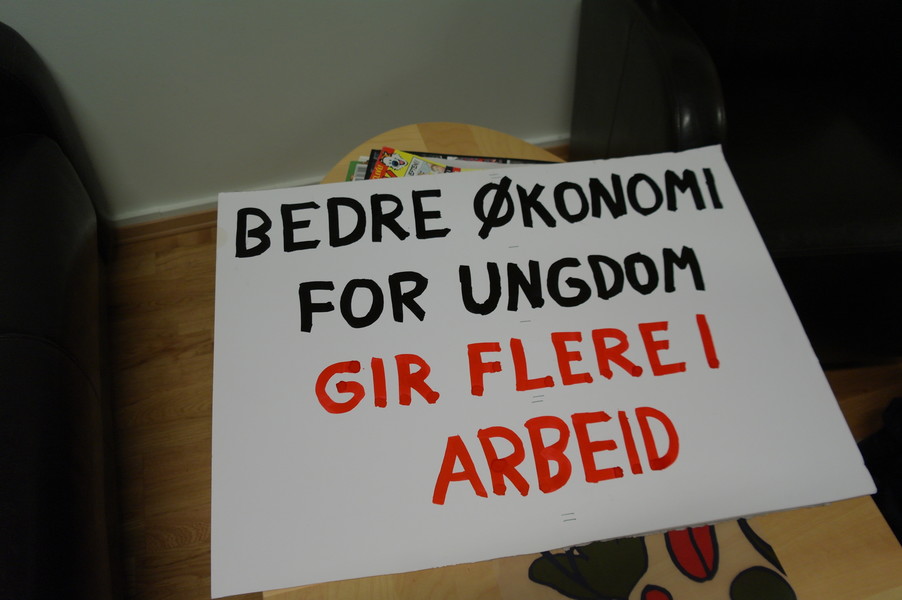 BEDRE ØKONOMI
FOR UNGDOM
GIR FLERE I
ARBEID